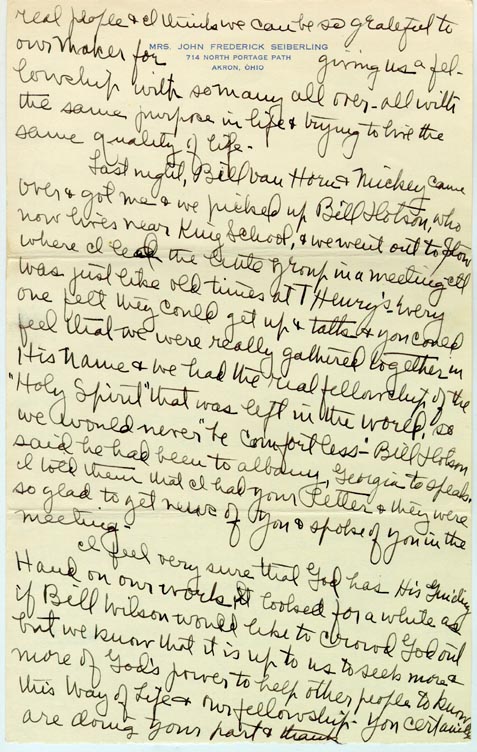 real people & I think we can be so grateful to
our Maker for giving us a fel-
MRS. JOHN FREDERICK SEIBERLING
714 NORTH PORTAGE PATH
AKRON, OHIO
lowship with so many all over - all with
the same purpose in life & trying to live the
same quality of life -
Last night, Bill Van Horn & Mickey came
over & got me & we picked up Bill Hotson, who
now lives near King School, & we went out to Stow
where I lead the little group in a meeting - It
was just like old times at T Henry's - Every
one felt they could get up & talk & you could
feel that we were really gathered together in
His Name & we had the real fellowship of the
"Holy Spirit" that was left in the world, so
we would never "be comfortless" - Bill Hotson
said he had been to Albany, Georgia to speak.
I told them that I had your letter & they were
so glad to get news of you & spoke of you in the
meeting -
I feel very sure that God has His Guiding
Hand on our work. It looked for a while as
if Bill Wilson would like to crowd God out
but we know that it is up to us to seek more &
more of God's power to help other people to know
this Way of Life & our fellowship - You certainly
are doing your part & thank